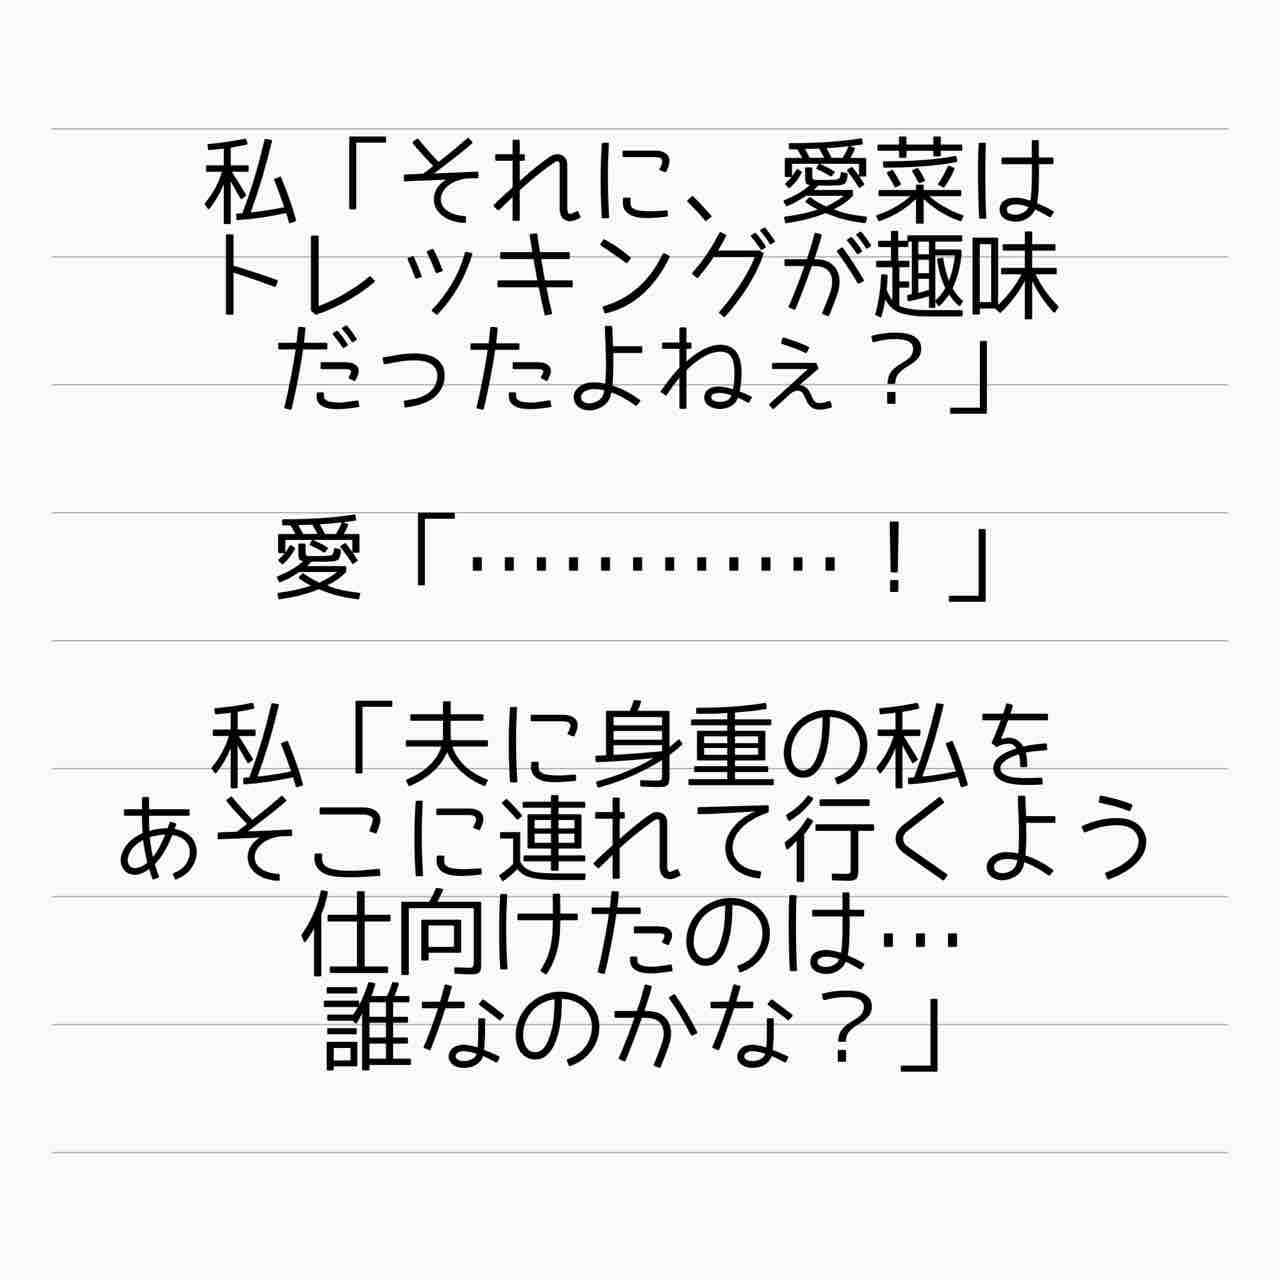 私「それに、愛菜は
トレッキングが趣味
だったよねぇ？」
愛「…………！」
私「夫に身重の私を
あそこに連れて行くよう
仕向けたのは…
誰なのかな？」